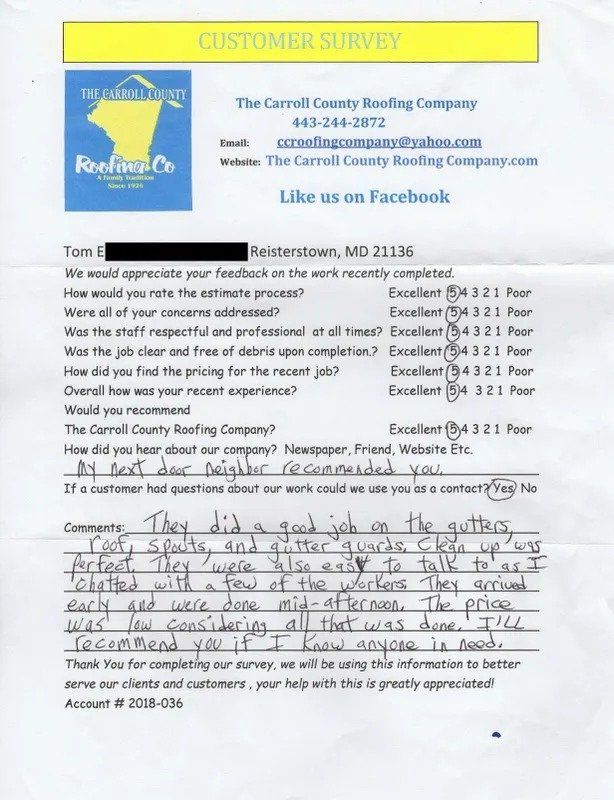 CUSTOMER SURVEY
THE CARROLL COUNTY
Roofing Co
A Family Tradition
Since 1926
The Carroll County Roofing Company
443-244-2872
Email: ccroofingcompany@yahoo.com
Website: The Carroll County Roofing Company.com
Like us on Facebook
Tom E Reisterstown, MD 21136
We would appreciate your feedback on the work recently completed.
How would you rate the estimate process? Excellent 5 4 3 2 1 Poor
Were all of your concerns addressed? Excellent 5 4 3 2 1 Poor
Was the staff respectful and professional at all times? Excellent 5 4 3 2 1 Poor
Was the job clear and free of debris upon completion.? Excellent 5 4 3 2 1 Poor
How did you find the pricing for the recent job? Excellent 5 4 3 2 1 Poor
Overall how was your recent experience? Excellent 5 4 3 2 1 Poor
Would you recommend
The Carroll County Roofing Company? Excellent 5 4 3 2 1 Poor
How did you hear about our company? Newspaper, Friend, Website Etc.
My next door neighbor recommended you.
If a customer had questions about our work could we use you as a contact? Yes No
Comments: They did a good job on the gutters,
roof, spouts, and gutter guards. Clean up was
perfect. They were also easy to talk to as I
chatted with a few of the workers. They arrived
early and were done mid-afternoon. The price
was low considering all that was done. I'll
recommend you if I know anyone in need.
Thank You for completing our survey, we will be using this information to better
serve our clients and customers , your help with this is greatly appreciated!
Account # 2018-036